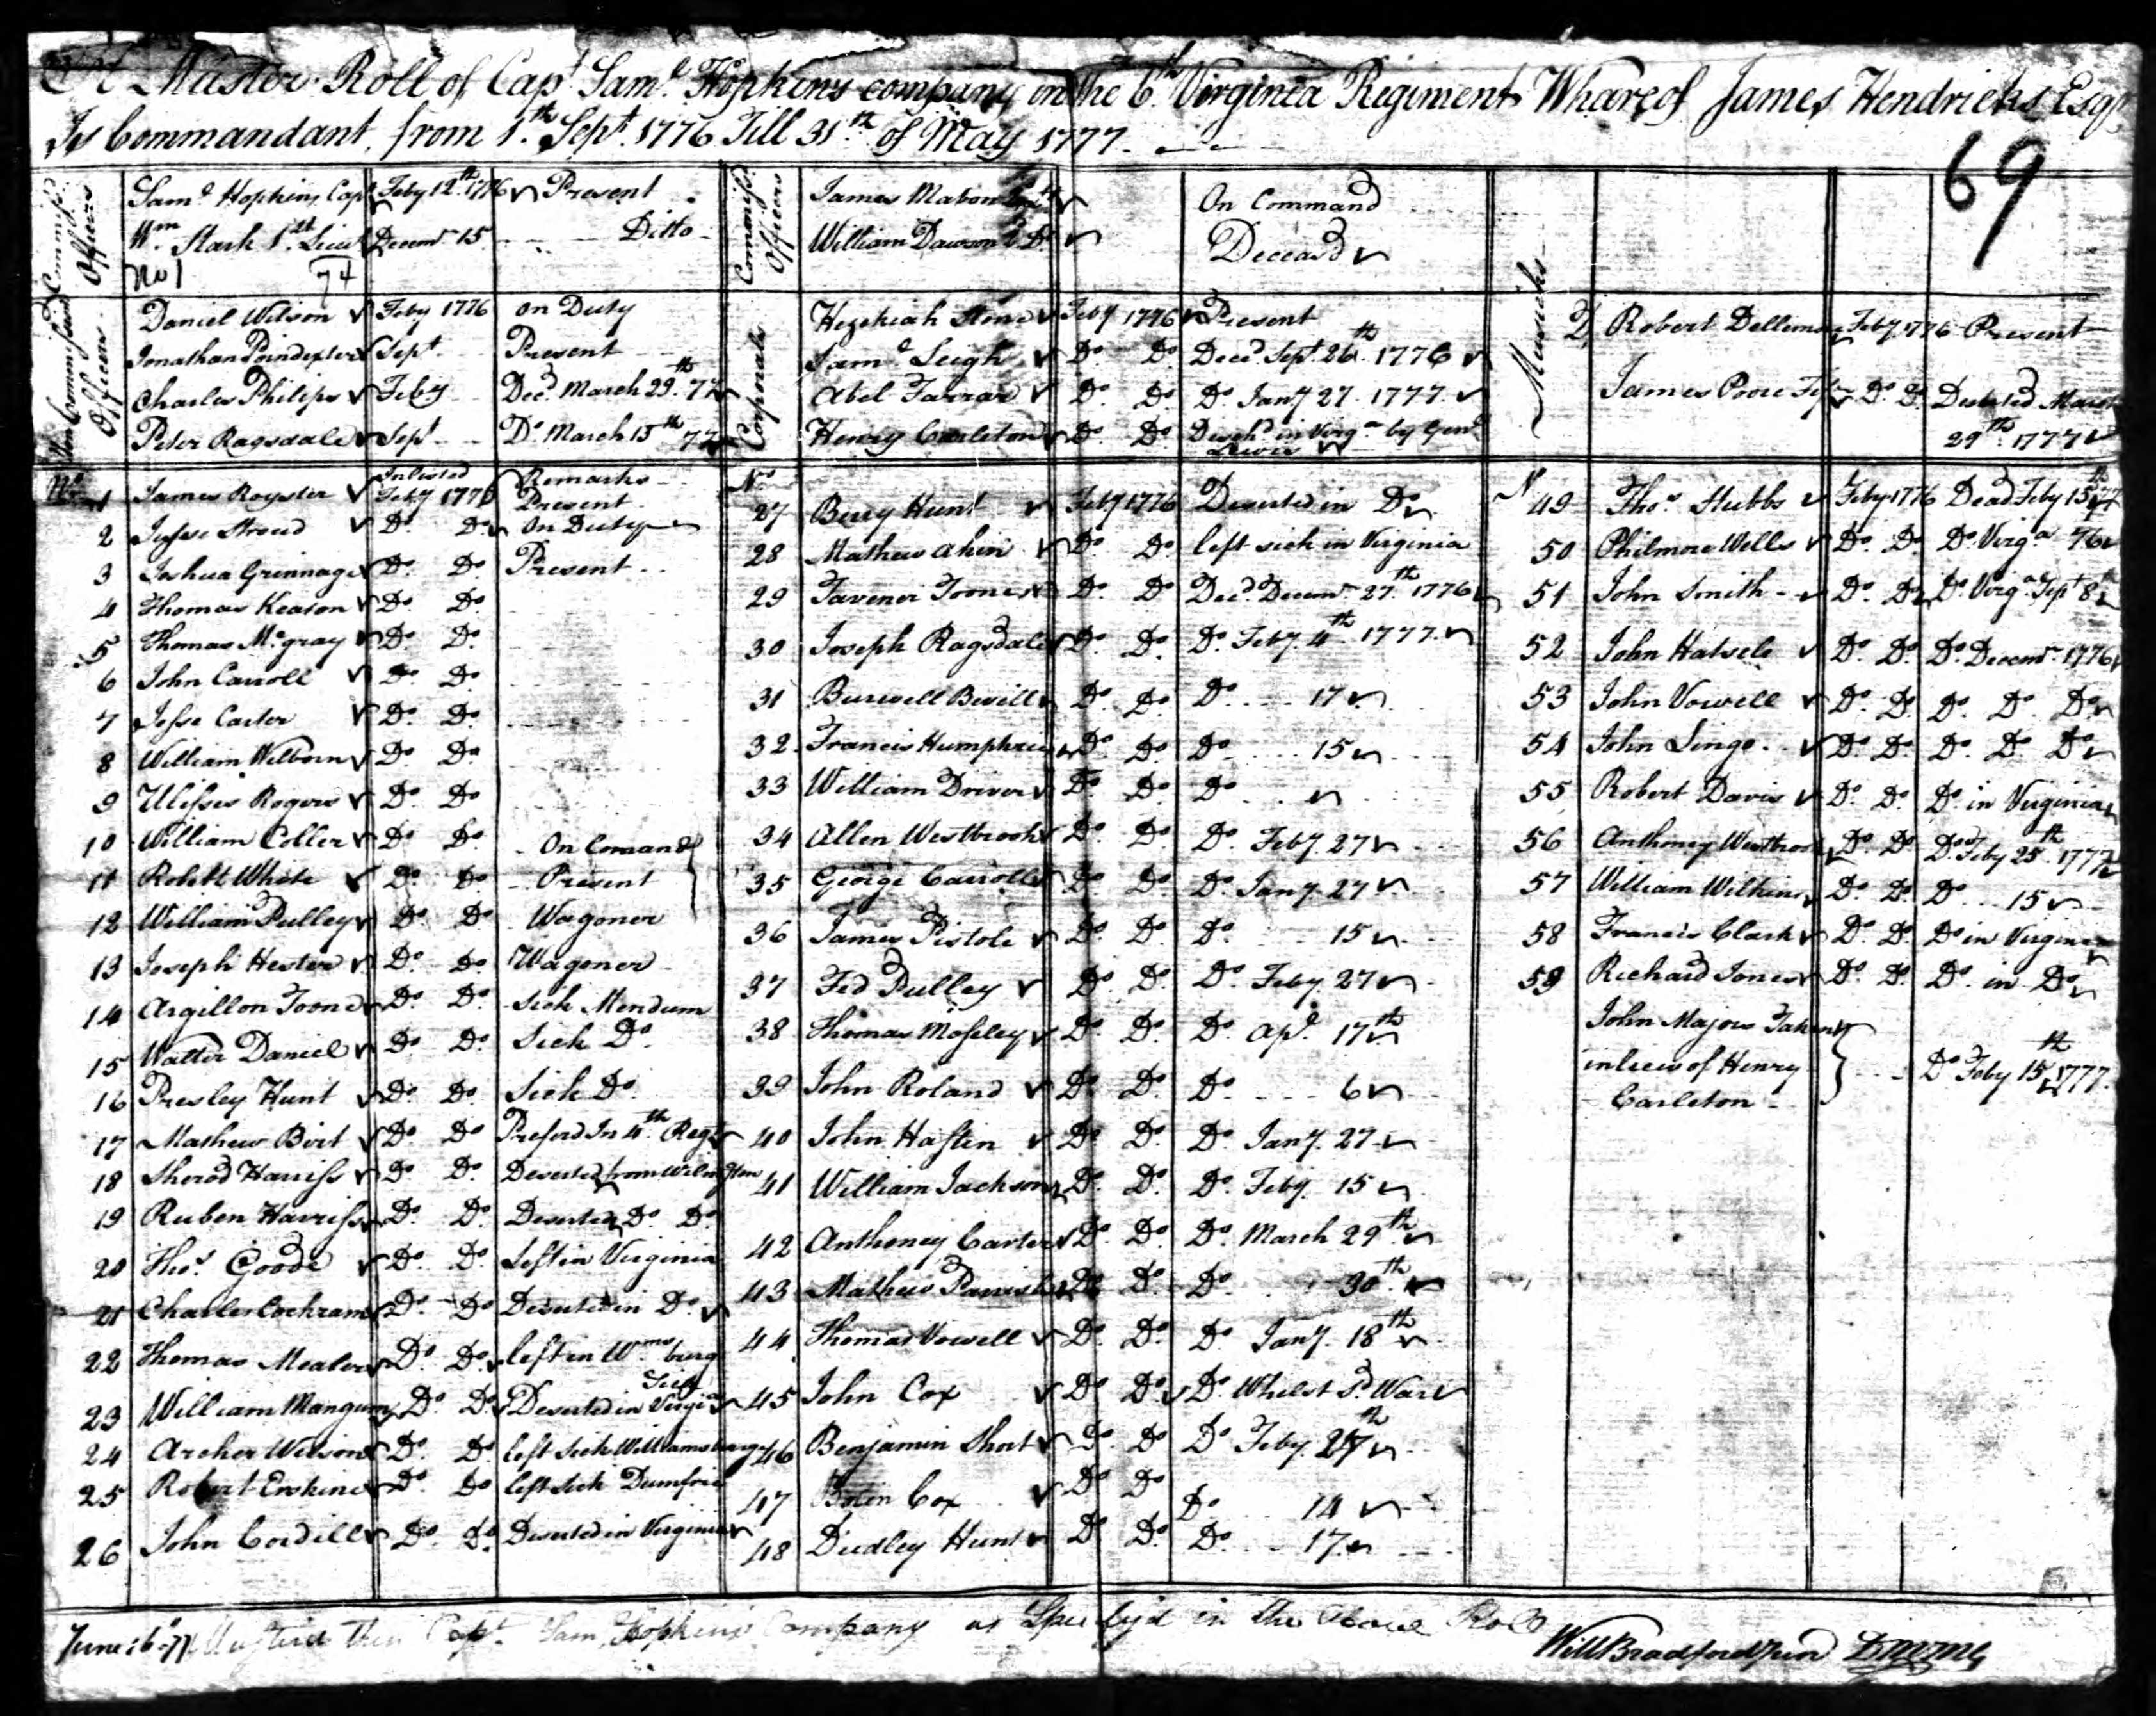 A Muster Roll of Capt Saml Hopkins company in the 6th Virginia Regiment Whareof James Hendricks Esqr
Is Commandant, from 1th Sept 1776 Till 31th of May 1777
69
Commissd Officers
Saml Hopkins Capt Feby 12th 1776 Present
Wm Stark 1st Lieut Decemr 15 Ditto
No 1 74
Commissd Officers
James Mabon On Command
William Dawson 2 Do Deceasd
Non Commissiond Officers
Daniel Wilson Feby 1776 on Duty
Jonathan Poindexter Sept Present
Charles Philips Feby Decd March 29th 77
Peter Ragsdale Sept Do March 15th 77
Corporals
Hezekiah Stone Feby 1776 Present
Saml Leigh Do Do Decd Sept 26th 1776
Abel Farrar Do Do Do Jany 27 1777
Henry Carleton Do Do Disch'd in Virga by Genl Lewis
Musicks
Robert Dellimore Feby 1776 Present
James Poore Do Do Deserted March 29th 1777
No Inlisted Remarks
1 James Royster Feby 1776 Present
2 Jesse Stroud Do Do On Duty
3 Joshua Grinnage Do Do Present
4 Thomas Keaton Do Do
5 Thomas Mcgray Do Do
6 John Carroll Do Do
7 Jesse Carter Do Do
8 William Wilborn Do Do
9 Ulisses Rogers Do Do
10 William Coller Do Do On Comand
11 Robett White Do Do Present
12 William Pulley Do Do Wagoner
13 Joseph Hester Do Do Wagoner
14 Argillon Toone Do Do Sick Mendum
15 Walter Daniel Do Do Sick Do
16 Presley Hunt Do Do Sick Do
17 Mathew Birt Do Do Preford In 4th Regt
18 Sherod Harriss Do Do Deserted from Wilmington
19 Ruben Harriss Do Do Deserted Do Do
20 Thos Goode Do Do Left in Virginia
21 Charles Cochram Do Do Deserted in Do
22 Thomas Mealer Do Do left in Wmsburg Sick
23 William Mangum Do Do Deserted in Virgia
24 Archer Wilson Do Do left Sick Williamsburg
25 Robert Erskine Do Do left Sick Dumfries
26 John Cordill Do Do Deserted in Virginia
No
27 Berry Hunt Feby 1776 Deserted in Do
28 Mathew Akin Do Do left sick in Virginia
29 Tavener Toone Do Do Decd Decemr 27th 1776
30 Joseph Ragsdale Do Do Do Feby 4th 1777
31 Burwell Bevill Do Do Do 17
32 Francis Humphries Do Do Do 15
33 William Driver Do Do Do
34 Allen Westbrook Do Do Do Feby 27
35 George Carroll Do Do Do Jany 27
36 James Pistole Do Do Do 15
37 Fed Pulley Do Do Do Feby 27
38 Thomas Moseley Do Do Do Apl 17th
39 John Roland Do Do Do 6
40 John Hastin Do Do Do Jany 27
41 William Jackson Do Do Do Feby 15
42 Anthoney Carter Do Do Do March 29th
43 Mathew Parrish Do Do Do 30th
44 Thomas Vowell Do Do Do Jany 18th
45 John Cox Do Do Do Whilst P War
46 Benjamin Short Do Do Do Feby 27th
47 Bolin Cox Do Do Do 14
48 Dudley Hunt Do Do Do 17
N
49 Thos Stubbs Feby 1776 Dead Feby 15th 77
50 Philmore Wells Do Do Do Virga 76
51 John Smith Do Do Do Virga Sept 8th
52 John Hatsele Do Do Do Decemr 1776
53 John Vowell Do Do Do Do Do
54 John Singe Do Do Do Do Do
55 Robert Davis Do Do Do in Virginia
56 Anthoney Westbrook Do Do Do Feby 25th 1777
57 William Wilkins Do Do Do 15
58 Francis Clark Do Do Do in Virginia
59 Richard Jones Do Do Do in Do
John Majors Taken
in lieu of Henry Do Feby 15th 1777
Carleton
June 6 77 Mustred then Capt Sam Hopkins Company as Specifyd in the Above Roll
Will Bradford Jun D M M G